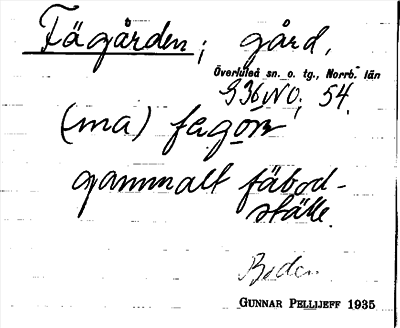 Fägården; gård,
Överluleå sn. o. tg., Norrb. län
S36NO, 54.
(ma) fagorn
gammalt fäbod-
ställe.
Boden
GUNNAR PELLIJEFF 1935